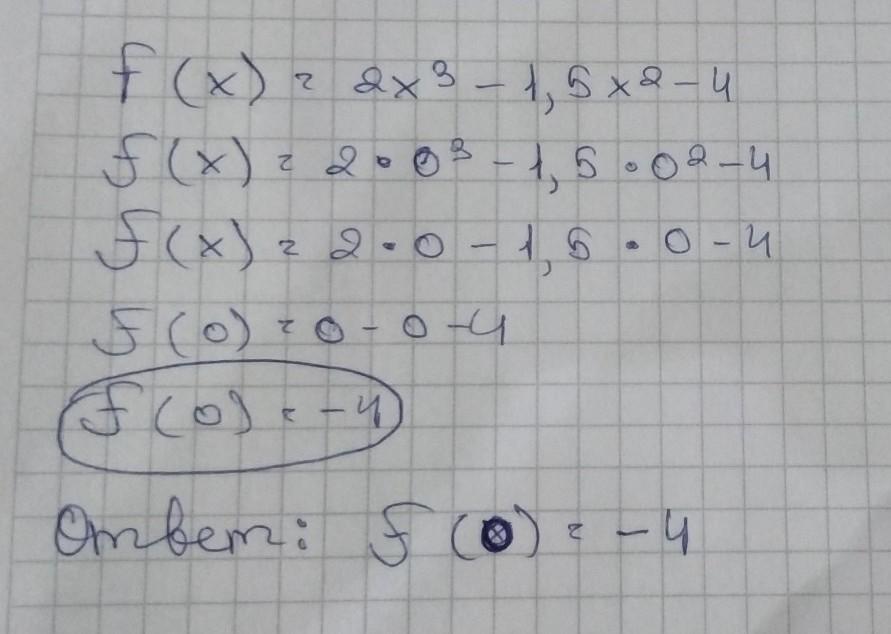 f(x) = 2x³ - 1,5x² - 4
f(x) = 2 · 0³ - 1,5 · 0² - 4
f(x) = 2 · 0 - 1,5 · 0 - 4
f(0) = 0 - 0 - 4
f(0) = -4
Ответ: f(0) = -4